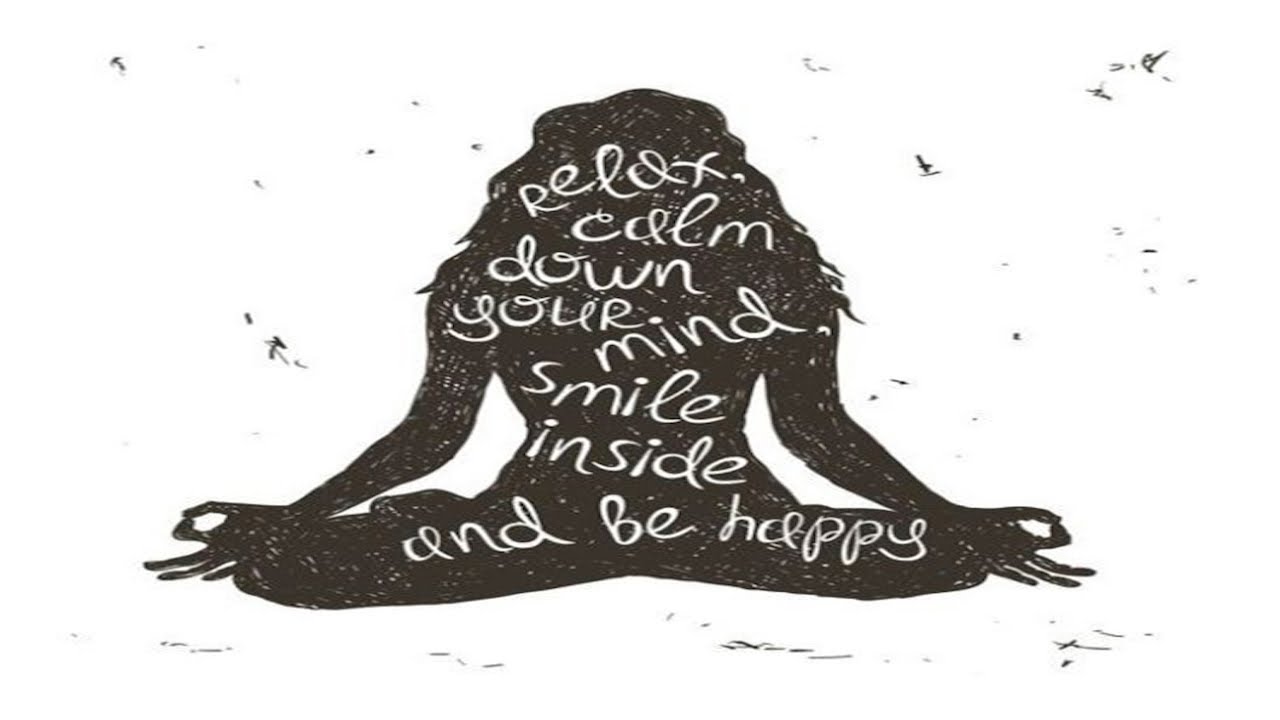 Relax,
calm
down
your
mind,
smile
inside
and be happy